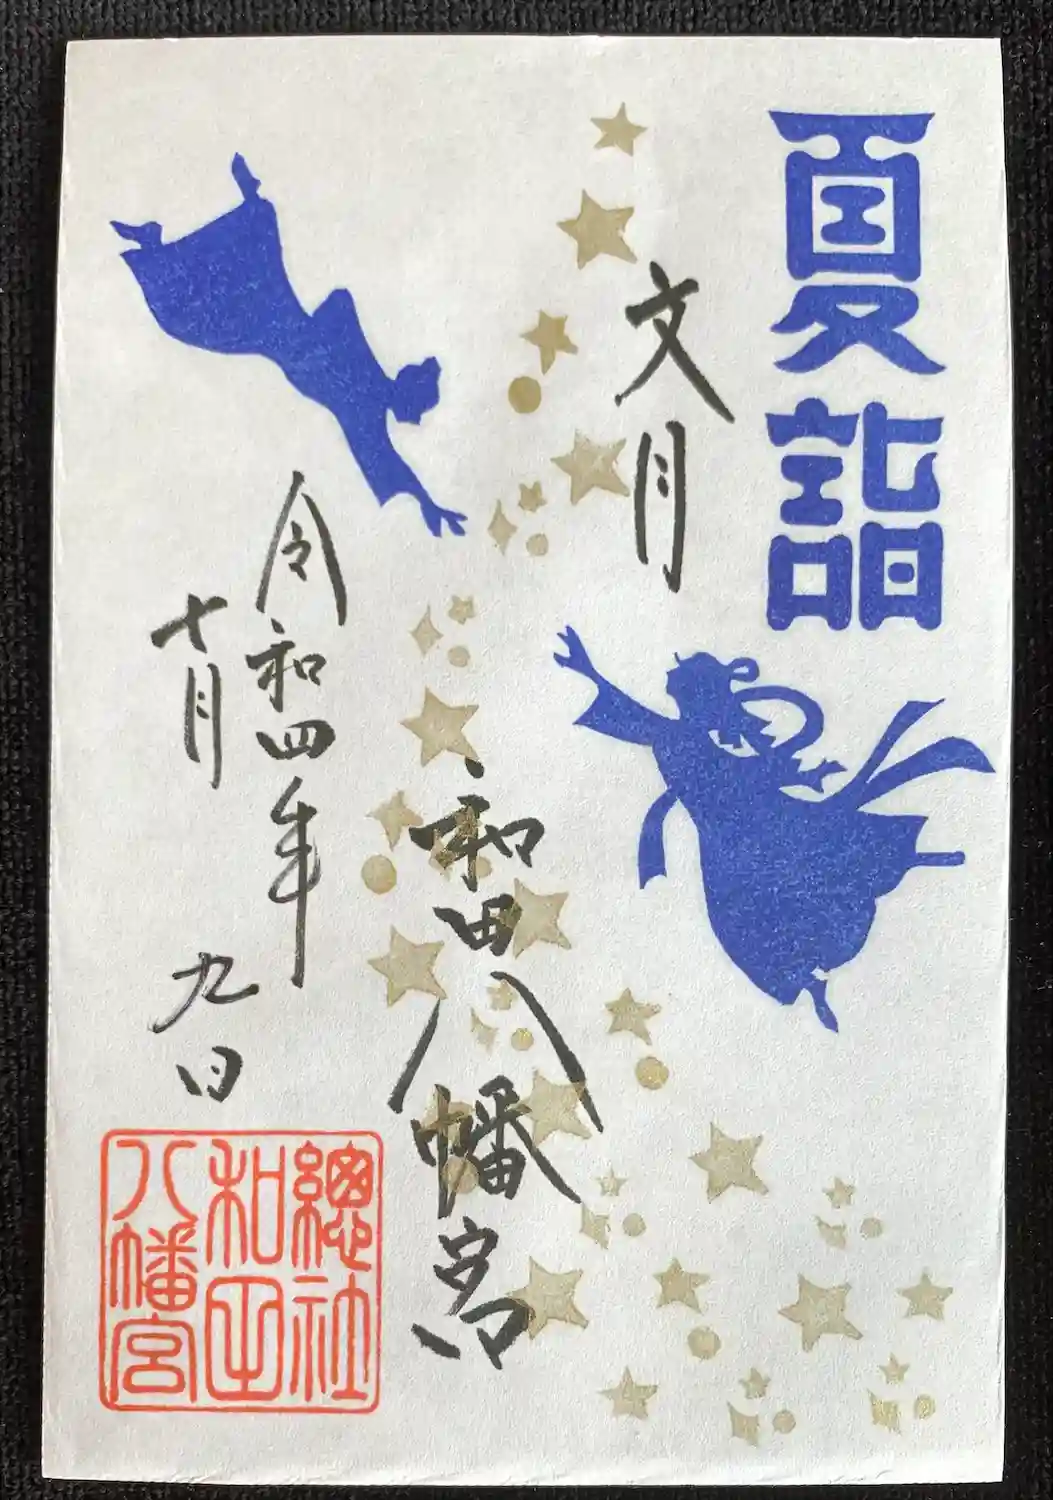 夏詣
文月
和田八幡宮
令和四年
七月九日
總社
和田
八幡宮